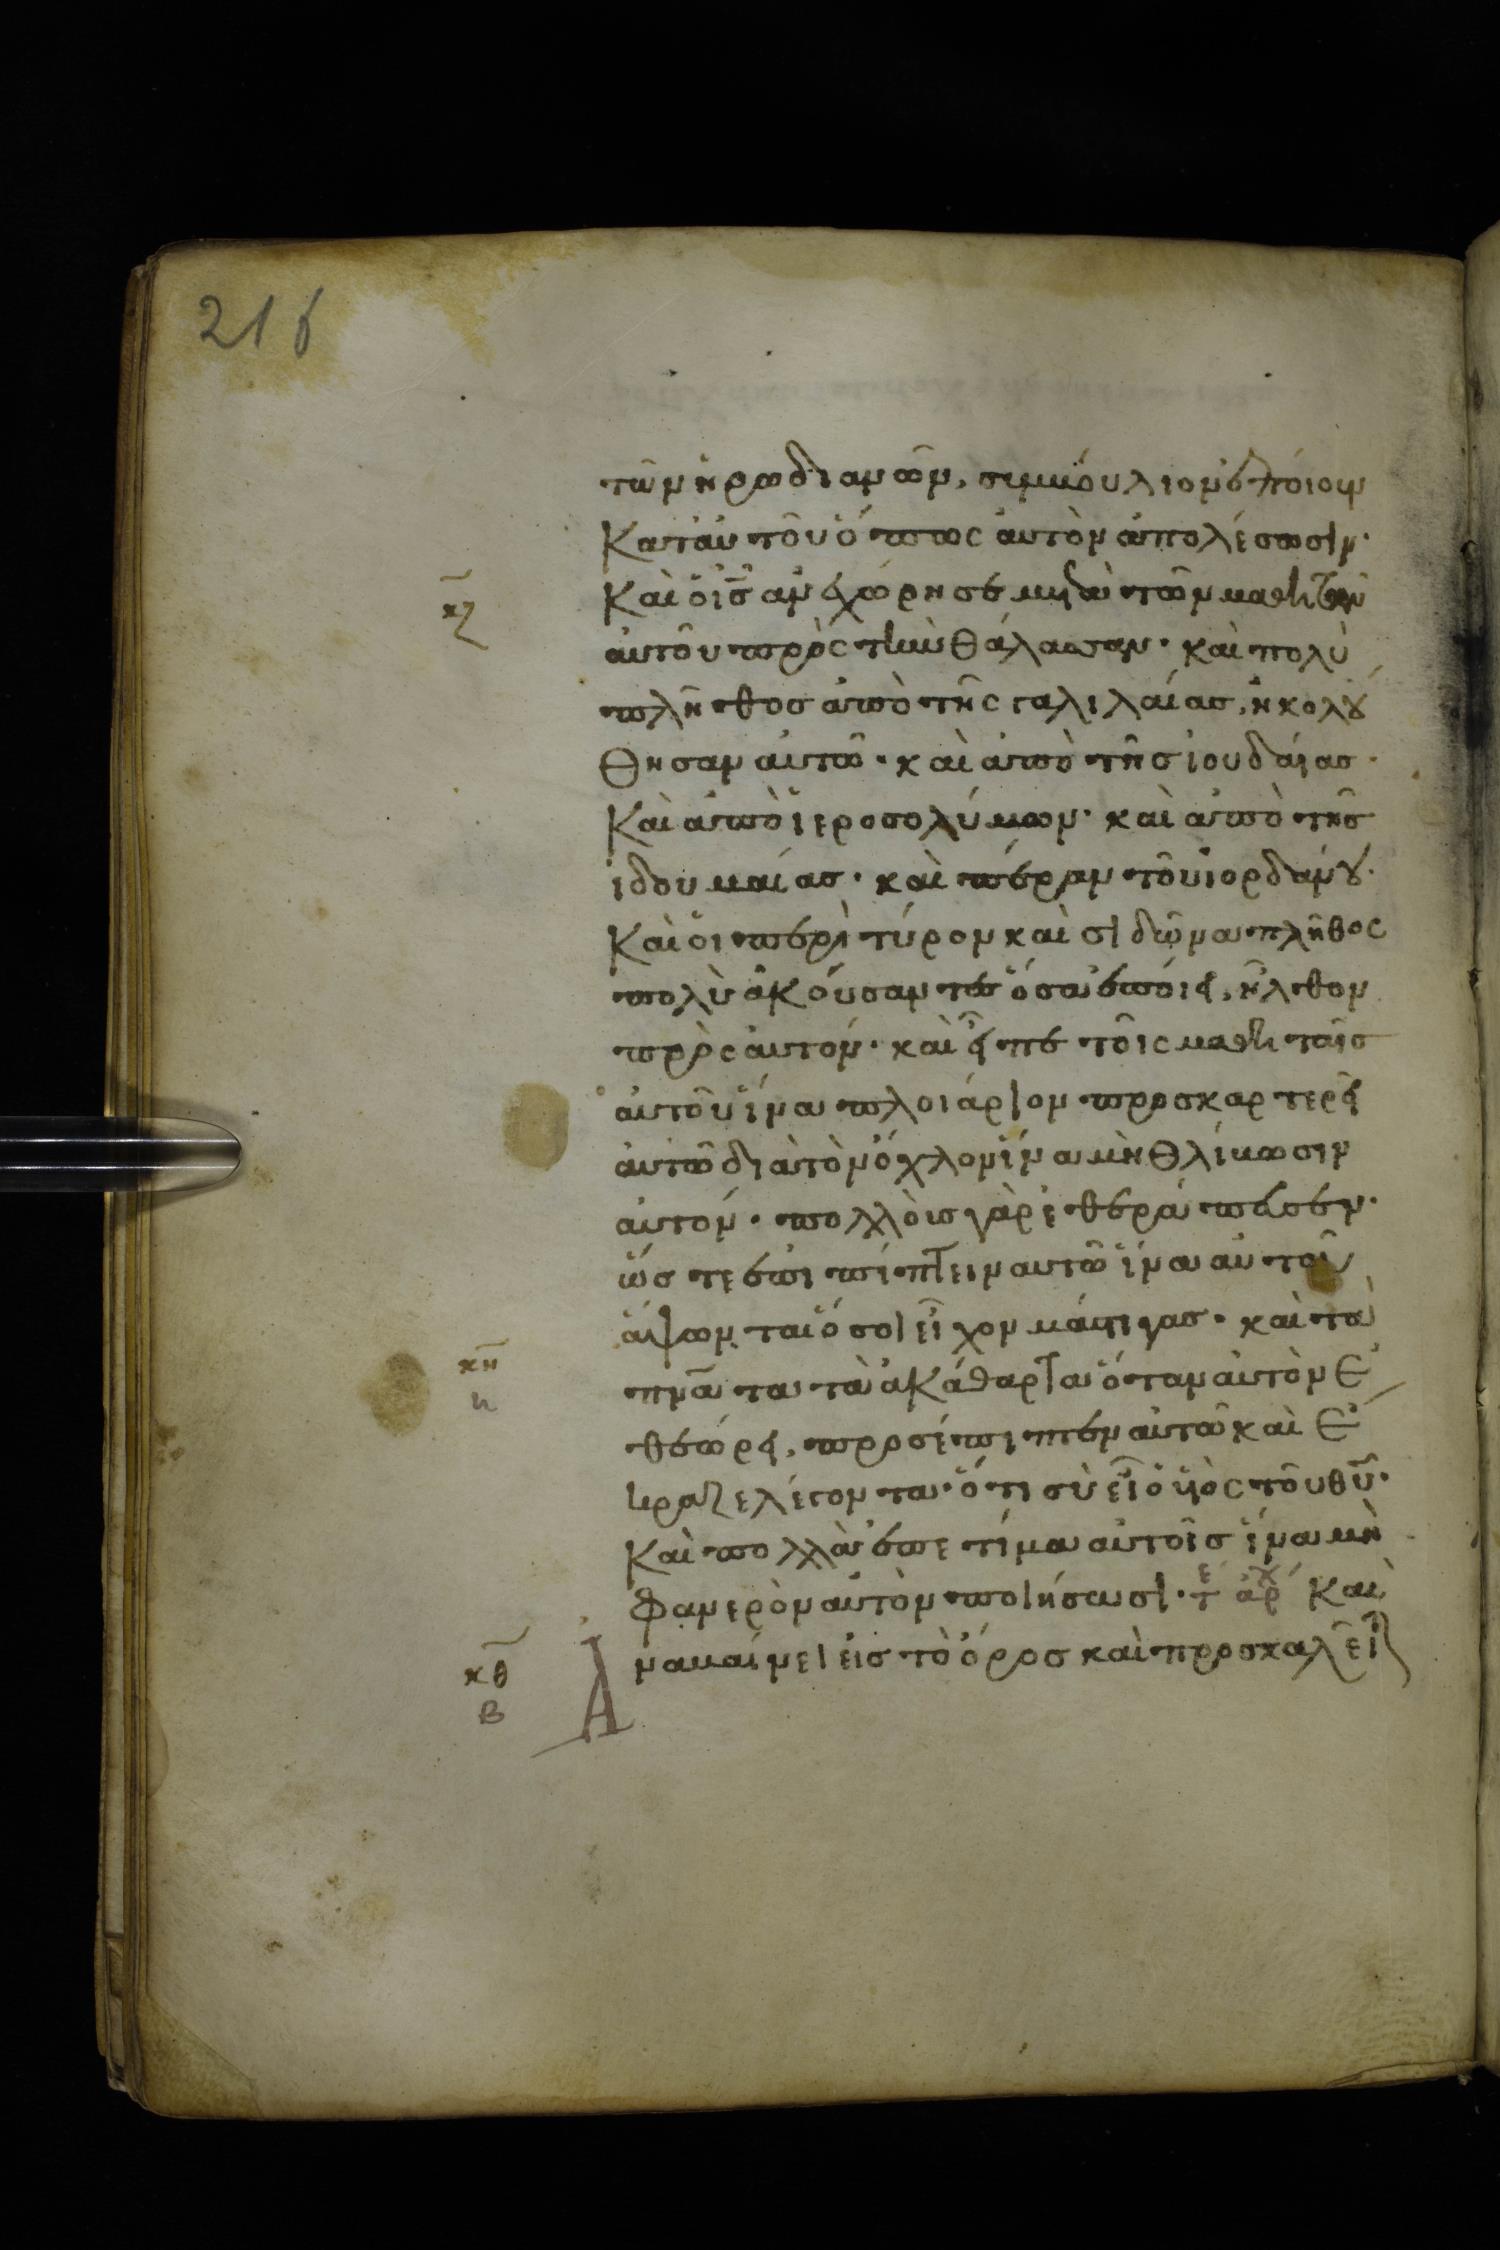 216
τῶν ἡρωδιανῶν, συμβούλιον ἐποίουν
Κατ αὐτοῦ ὅπως αὐτὸν ἀπολέσωσιν·
κζ Καὶ ὁ ις ἀνεχώρησε μετὰ τῶν μαθητῶν
αὐτοῦ πρὸς τὴν θάλασσαν· καὶ πολὺ
πλῆθος ἀπὸ τῆς γαλιλαίας, ἠκολού
θησαν αὐτῶ· καὶ ἀπὸ τῆς ἰουδαίας·
Καὶ ἀπὸ ἱεροσολύμων· καὶ ἀπὸ τῆς
ἰδουμαίας· καὶ πέραν τοῦ ἰορδάνου·
Καὶ οἱ περὶ τύρον καὶ σιδῶνα πλῆθος
πολὺ ἀκούσαντες ὅσα ἐποίει, ἦλθον
πρὸς αὐτόν· καὶ εἶπε τοῖς μαθηταῖς
αὐτοῦ ἵνα πλοιάριον προσκαρτερεῖ
αὐτῶ διὰ τὸν ὄχλον ἵνα μὴ θλίβωσιν
αὐτόν· πολλοὺς γὰρ ἐθεράπευσεν·
ὥστε ἐπιπίπτειν αὐτῶ ἵνα αὐτοῦ
ἅψωνται ὅσοι εἶχον μάστιγας· καὶ τὰ
κη η πνατα τὰ ἀκάθαρτα ὅταν αὐτὸν ἐ
θεώρει, προσέπιπτεν αὐτῶ καὶ ἔ
κραζε λέγοντα· ὅτι σὺ εἶ ὁ υἱὸς τοῦ θυ·
Καὶ πολλὰ ἐπετίμα αὐτοῖς ἵνα μὴ
φανερὸν αὐτὸν ποιήσωσι· τε αρχ Καὶ
κθ β Ἀ ναβαίνει εἰς τὸ ὄρος καὶ προσκαλεῖ